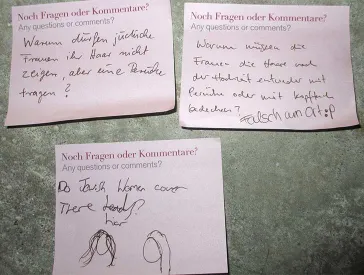 Noch Fragen oder Kommentare?
Any questions or comments?
Warum dürfen jüdische
Frauen ihr Haar nicht
zeigen, aber eine Perücke
tragen?
Noch Fragen oder Kommentare?
Any questions or comments?
Warum müssen die
Frauen die Haare nach
der Hochzeit entweder mit
Perücke oder mit Kopftuch
bedecken?
Falsch um
Noch Fragen oder Kommentare?
Any questions or comments?
Do Jewish Women cover
There heads?
hair